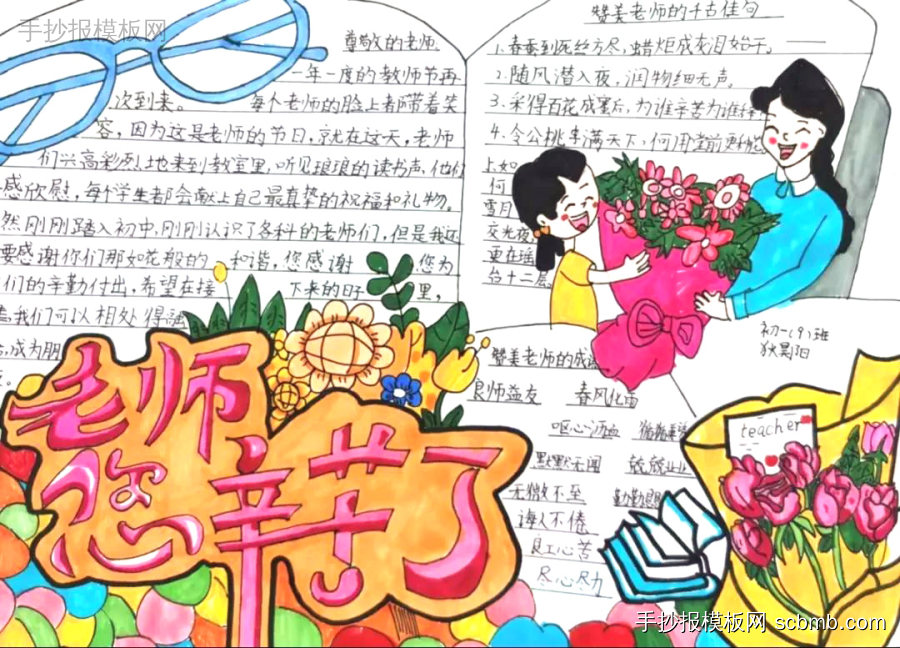 手抄报模板网
尊敬的老师:
一年一度的教师节再
次到来。 每个老师的脸上都带着笑
容，因为这是老师的节日，就在这天，老师
们兴高彩烈地来到教室里，听见琅琅的读书声，他们
感欣慰，每个学生都会献上自己最真挚的祝福和礼物。
然刚刚踏入初中，刚刚认识了各科的老师们，但是我还
要感谢你们那如花般的 和谐，您感谢 您为
们的辛勤付出，希望在接 下来的日子 里，
我们可以相处得融
成为朋
老师
您辛苦了
赞美老师的千古佳句
1.春蚕到死丝方尽，蜡炬成灰泪始干。
2.随风潜入夜，润物细无声。
3、采得百花成蜜后，为谁辛苦为谁
4、令公桃李满天下，何用堂前更
上如
何
雪月
交光夜
更在瑶
台十二层。
初一(9)班
赞美老师的成
良师益友 春风化雨
呕心沥血
默默无闻 兢兢业业
无微不至 勤勤恳
诲人不倦
良工心苦
尽心尽力
teacher
手抄报模板网 scbmb.com